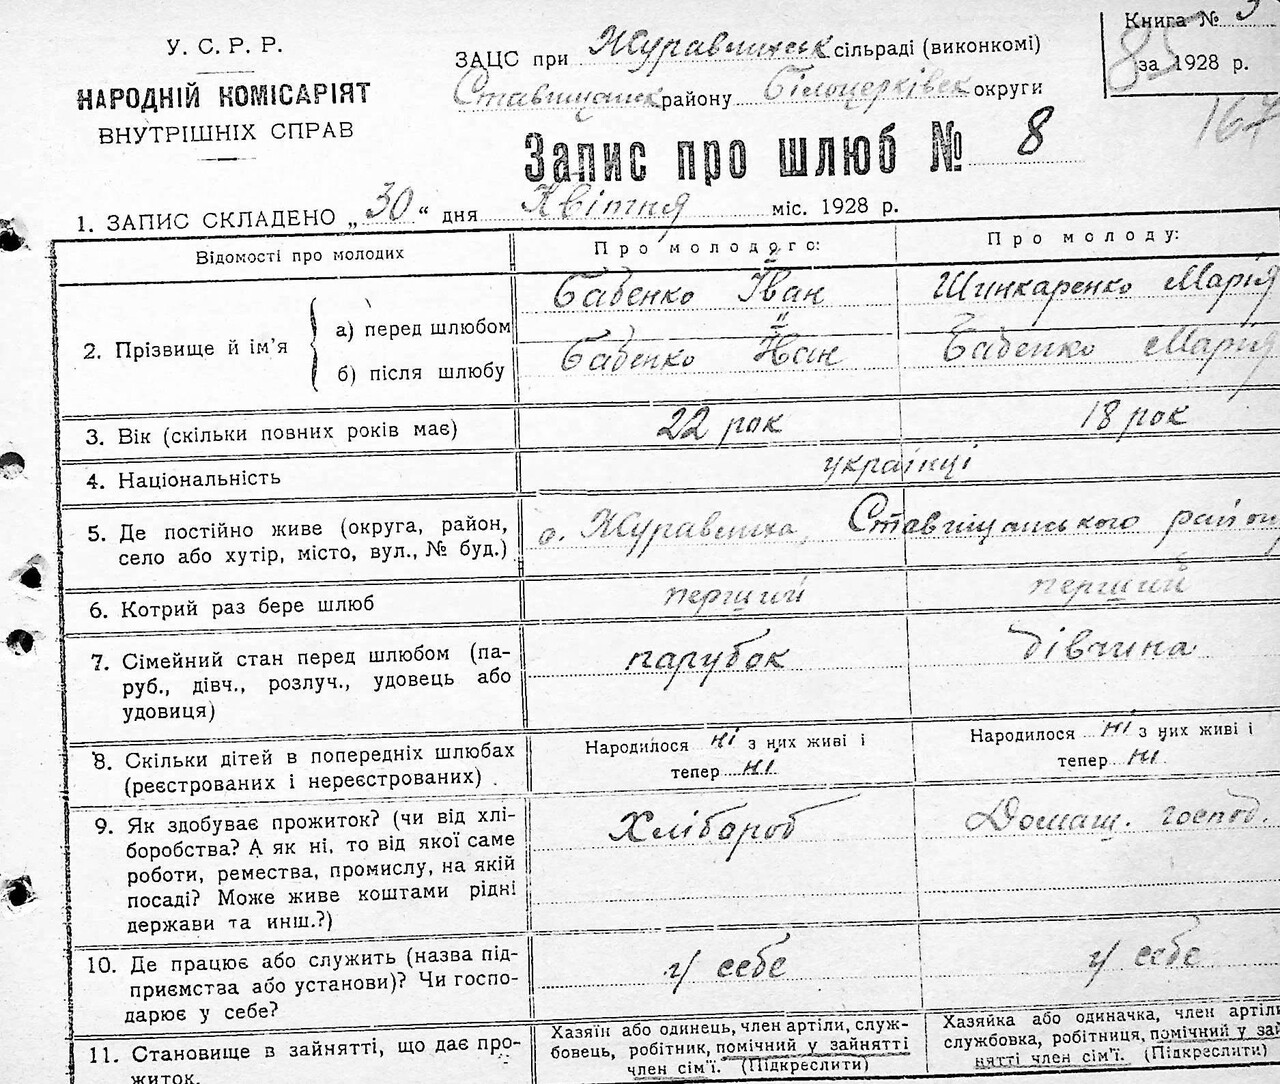 У. С. Р. Р.
НАРОДНІЙ КОМІСАРІЯТ
ВНУТРІШНІХ СПРАВ
ЗАЦС при Журавлинськ сільраді (виконкомі)
Ставищанськ району Білоцерківськ округи
Книга № 3
за 1928 р.
85
167
Запис про шлюб № 8
1. ЗАПИС СКЛАДЕНО „30“ дня Квітня міс. 1928 р.
Відомості про молодих
Про молодого:
Про молоду:
2. Прізвище й ім'я
а) перед шлюбом
Бабенко Іван
Шинкаренко Марія
б) після шлюбу
Бабенко Іван
Бабенко Марія
3. Вік (скільки повних років має)
22 рок
18 рок
4. Національність
українці
5. Де постійно живе (округа, район,
село або хутір, місто, вул., № буд.)
с. Журавлиха, Ставищанського району
6. Котрий раз бере шлюб
перший
перший
7. Сімейний стан перед шлюбом (па-
руб., дівч., розлуч., удовець або
удовиця)
парубок
дівчина
8. Скільки дітей в попередніх шлюбах
(реєстрованих і нереєстрованих) .
Народилося ні з них живі і
тепер ні
Народилося ні з них живі і
тепер ні
9. Як здобуває прожиток? (чи від хлі-
боробства? А як ні, то від якої саме
роботи, ремества, промислу, на якій
посаді? Може живе коштами рідні
держави та инш.?)
Хлібороб
Домаш. господ.
10. Де працює або служить (назва під-
приємства або установи)? Чи госпо-
дарює у себе?
у себе
у себе
11. Становище в зайнятті, що дає про-
житок.
Хазяїн або одинець, член артіли, служ-
бовець, робітник, помічний у зайнятті
член сім'ї. (Підкреслити)
Хазяйка або одиначка, член артіли
службовка, робітниця, помічний у зай
нятті член сім'ї. (Підкреслити)